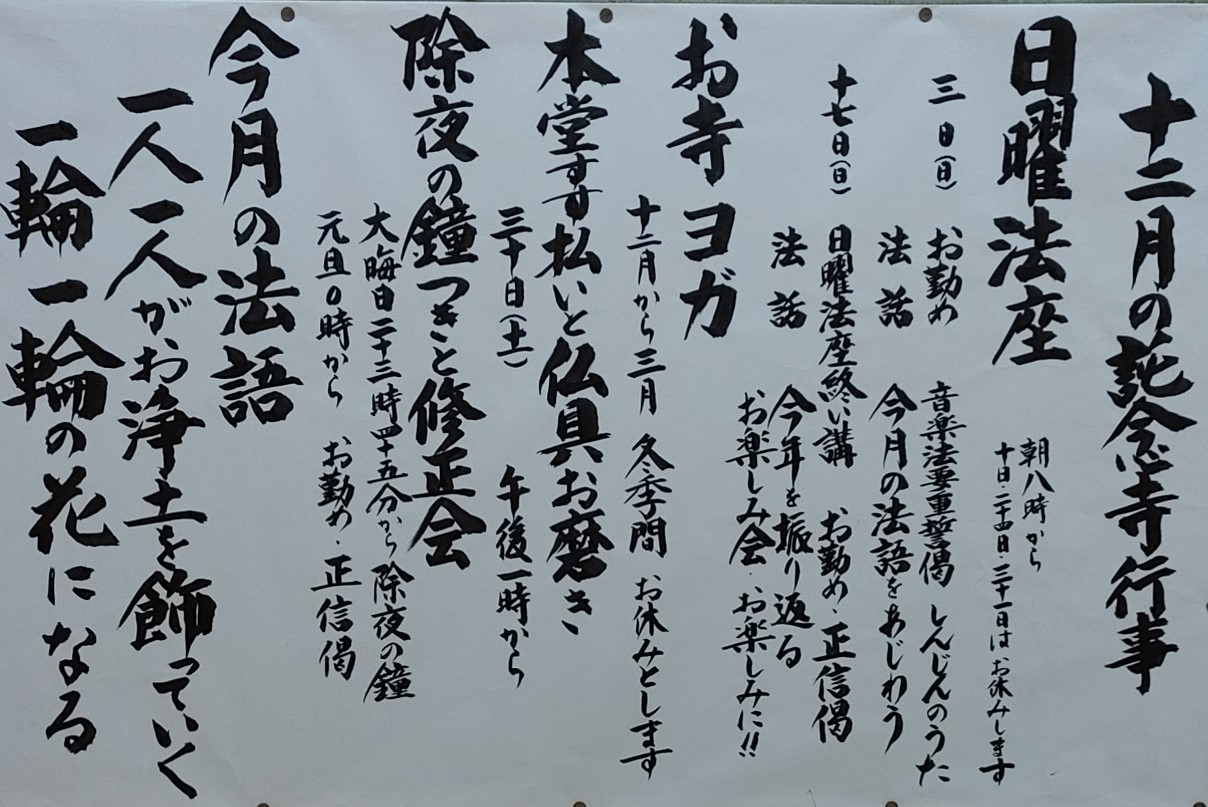 十二月の託念寺行事
日曜法座
朝八時から
十日・二十四日・三十一日はお休みします
三日(日) お勤め 音楽法要重誓偈 しんじんのうた
法話 今月の法語をあじわう
十七日(日) 日曜法座終い講 お勤め・正信偈
法話 今年を振り返る
お楽しみ会・お楽しみに!!
お寺ヨガ
十二月から三月 冬季間 お休みとします
本堂すす払いと仏具お磨き
三十日(土) 午後一時から
除夜の鐘つきと修正会
大晦日二十三時四十五分から除夜の鐘
元旦0時から お勤め・正信偈
今月の法語
一人一人がお浄土を飾っていく
一輪一輪の花になる